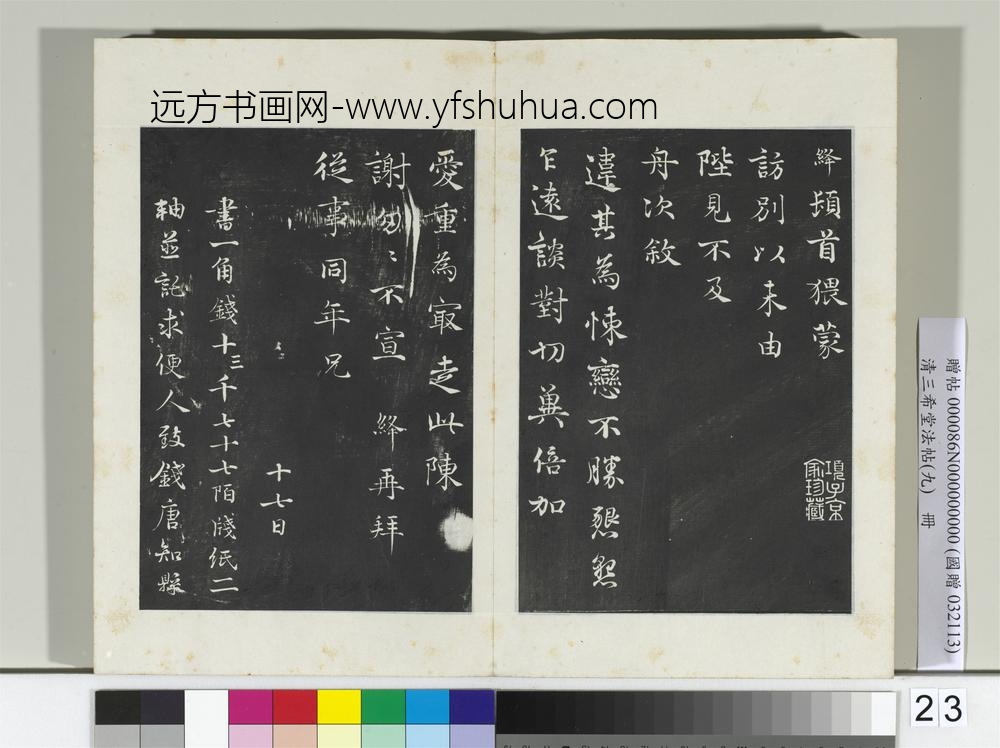 远方书画网-www.yfshuhua.com
絳頓首猥蒙
訪別以未由
陛見不及
舟次敘
違其為悚戀不勝懇懇
乍遠談對切兾倍加
愛重為㝡走此陳
謝匆〻不宣 絳再拜
從事同年兄
十七日
書一角錢十三千七十七陌牋紙二
軸並託求便人致錢唐知縣
項子京家珍藏
贈帖 000086N000000000 (國贈 032113)
清三希堂法帖(九) 冊
23